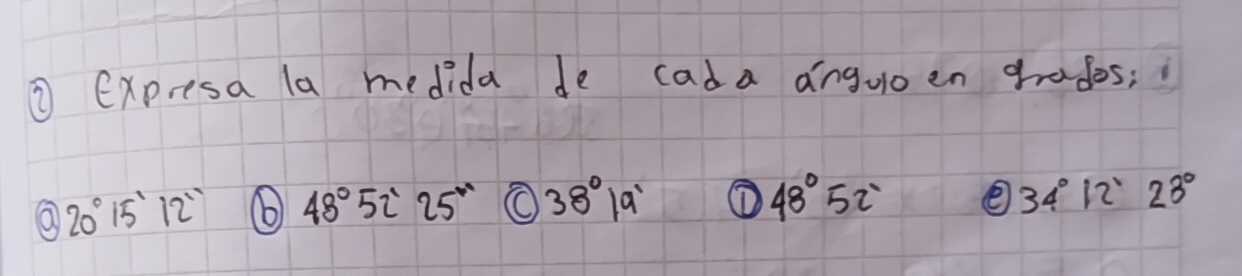 ② Expresa la medida de cada ángulo en grados:
ⓐ 20° 15' 12'' ⓑ 48° 52' 25'' ⓒ 38° 19' Ⓓ 48° 52' ⓔ 34° 12' 23°